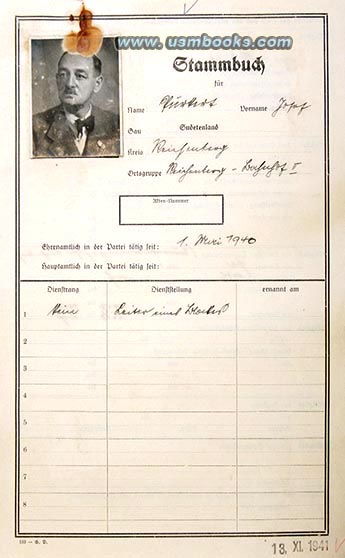 www.usmbooks.com
Stammbuch
für
Name Vorname Josef
Gau Sudetenland
Kreis Reichenberg
Ortsgruppe Reichenberg - Bahnhof II
Akten-Nummer
Ehrenamtlich in der Partei tätig seit: 1. 1940
Hauptamtlich in der Partei tätig seit:
Dienstrang Dienststellung ernannt am
1 Leiter eines Blockes
2
3
4
5
6
7
8
13. XI. 1941